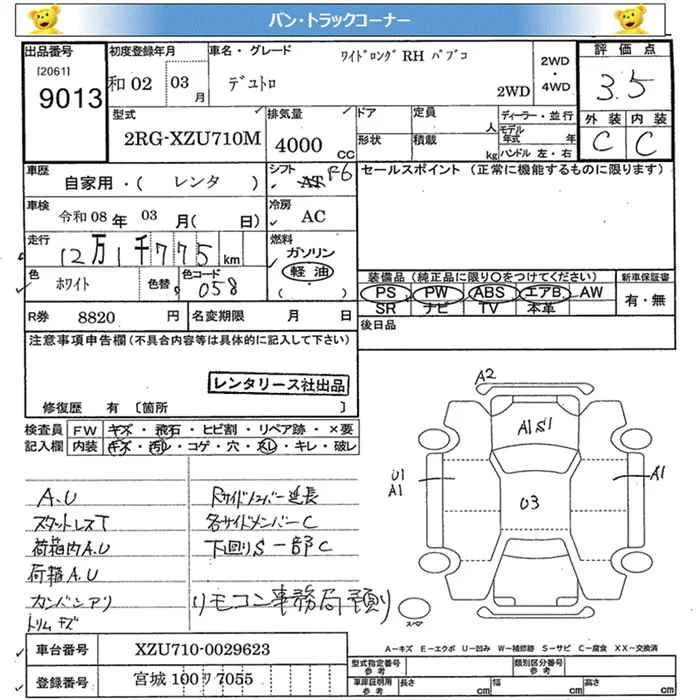 バン・トラックコーナー
出品番号
[2061]
9013
初度登録年月
和02 03月
車名・グレード
ワイドロング RH パブコ
デュトロ
2WD
2WD・4WD
評価点
3.5
型式
2RG-XZU710M
排気量
4000 CC
ドア
形状
定員 人
積載 kg
ディーラー・並行
モデル年式 年
ハンドル 左・右
外装 内装
C C
車歴
自家用・( レンタ )
シフト
AT F6
セールスポイント (正常に機能するものに限ります)
車検
令和08年 03月( 日)
冷房
AC
走行
12万1千775km
燃料
ガソリン
軽油
( ・ )
色
ホワイト
色替
色コード
058
装備品 (純正品に限り〇をつけてください)
PS PW ABS エアB AW
SR ナビ TV 本革
新車保証書
有・無
R券 8820 円
名変期限 月 日
後日品
注意事項申告欄(不具合内容等は具体的に記入して下さい)
レンタリース社出品
修復歴 有 [箇所 ]
検査員記入欄
FW キズ・飛石・ヒビ割・リペア跡・×要
内装 キズ・汚レ・コゲ・穴・スレ・キレ・破レ
A.U
スタットレスT
荷箱内A.U
荷箱A.U
カンバンアリ
トリムキズ
Rサイドメンバー延長
各サイドメンバーC
下回りS一部C
リモコン事務局預り
A2
A1S1
U1
A1
A1
03
スペア
車台番号 XZU710-0029623
登録番号 宮城 100 ワ 7055
A−キズ E−エクボ U−凹み W−補修跡 S−サビ C−腐食 XX−交換済
型式指定番号 参考
類別区分番号 参考
車庫証明用 参考
長さ cm
幅 cm
高さ cm